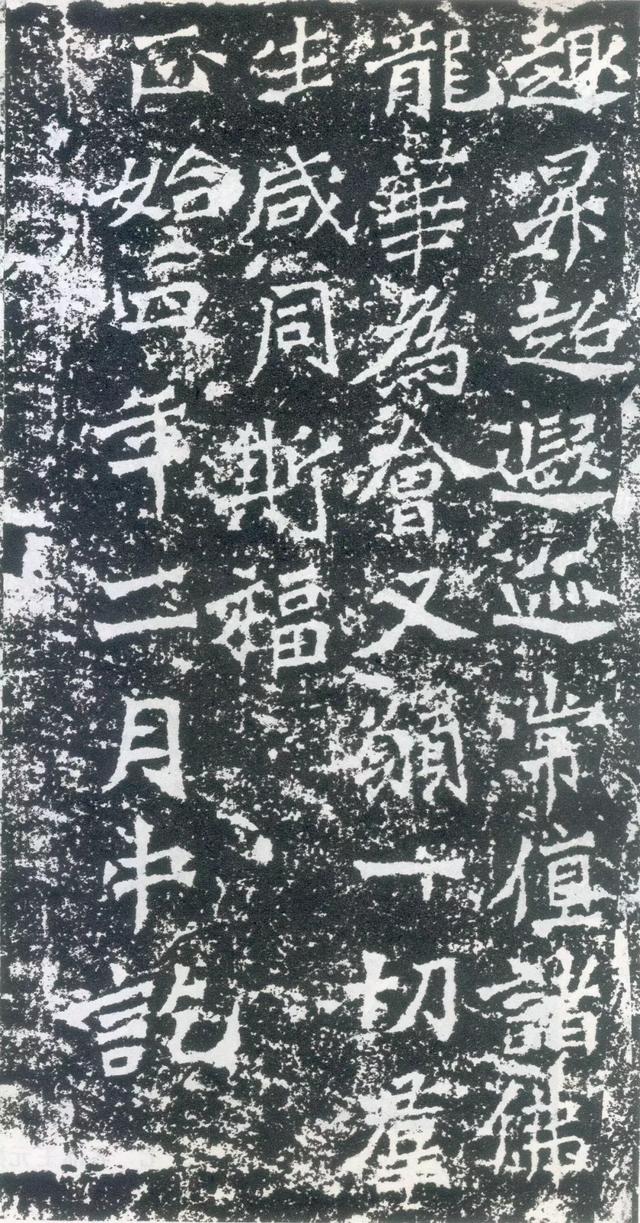 趣昇超遐迩常值諸佛
龍華為會又願一切群
生咸同斯福
正始四年二月中訖